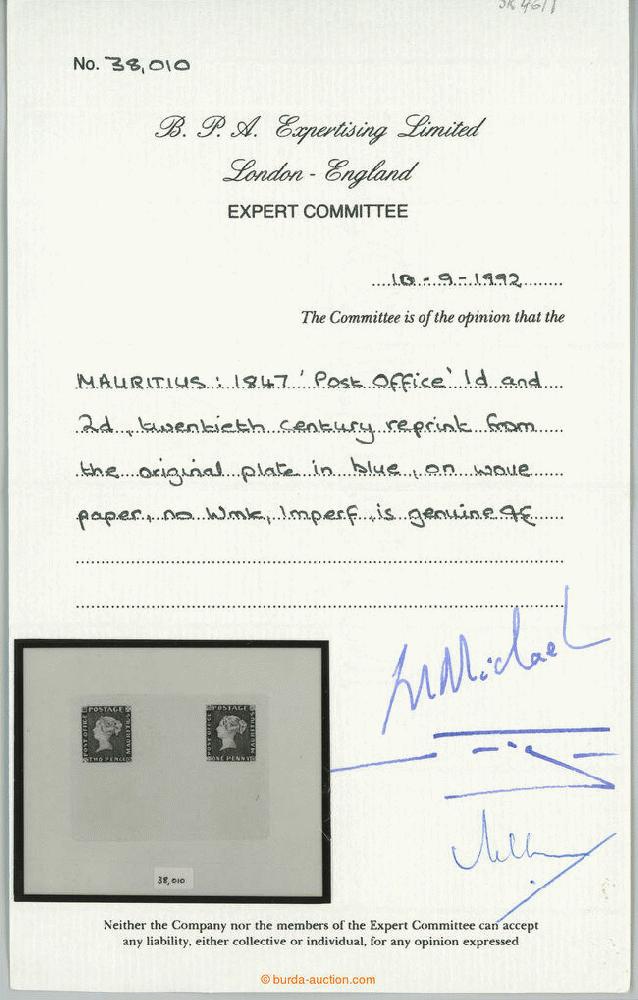 No. 38,010
B. P. A. Expertising Limited
London - England
EXPERT COMMITTEE
10 - 9 - 1992
The Committee is of the opinion that the
MAURITIUS : 1847 'Post Office' 1d and
2d, twentieth century reprint from
the original plate in blue, on wove
paper, no Wmk, Imperf, is genuine
POST OFFICE POSTAGE MAURITIUS TWO PENCE
POST OFFICE POSTAGE MAURITIUS ONE PENNY
38,010
Neither the Company nor the members of the Expert Committee can accept
any liability, either collective or individual, for any opinion expressed
© burda-auction.com